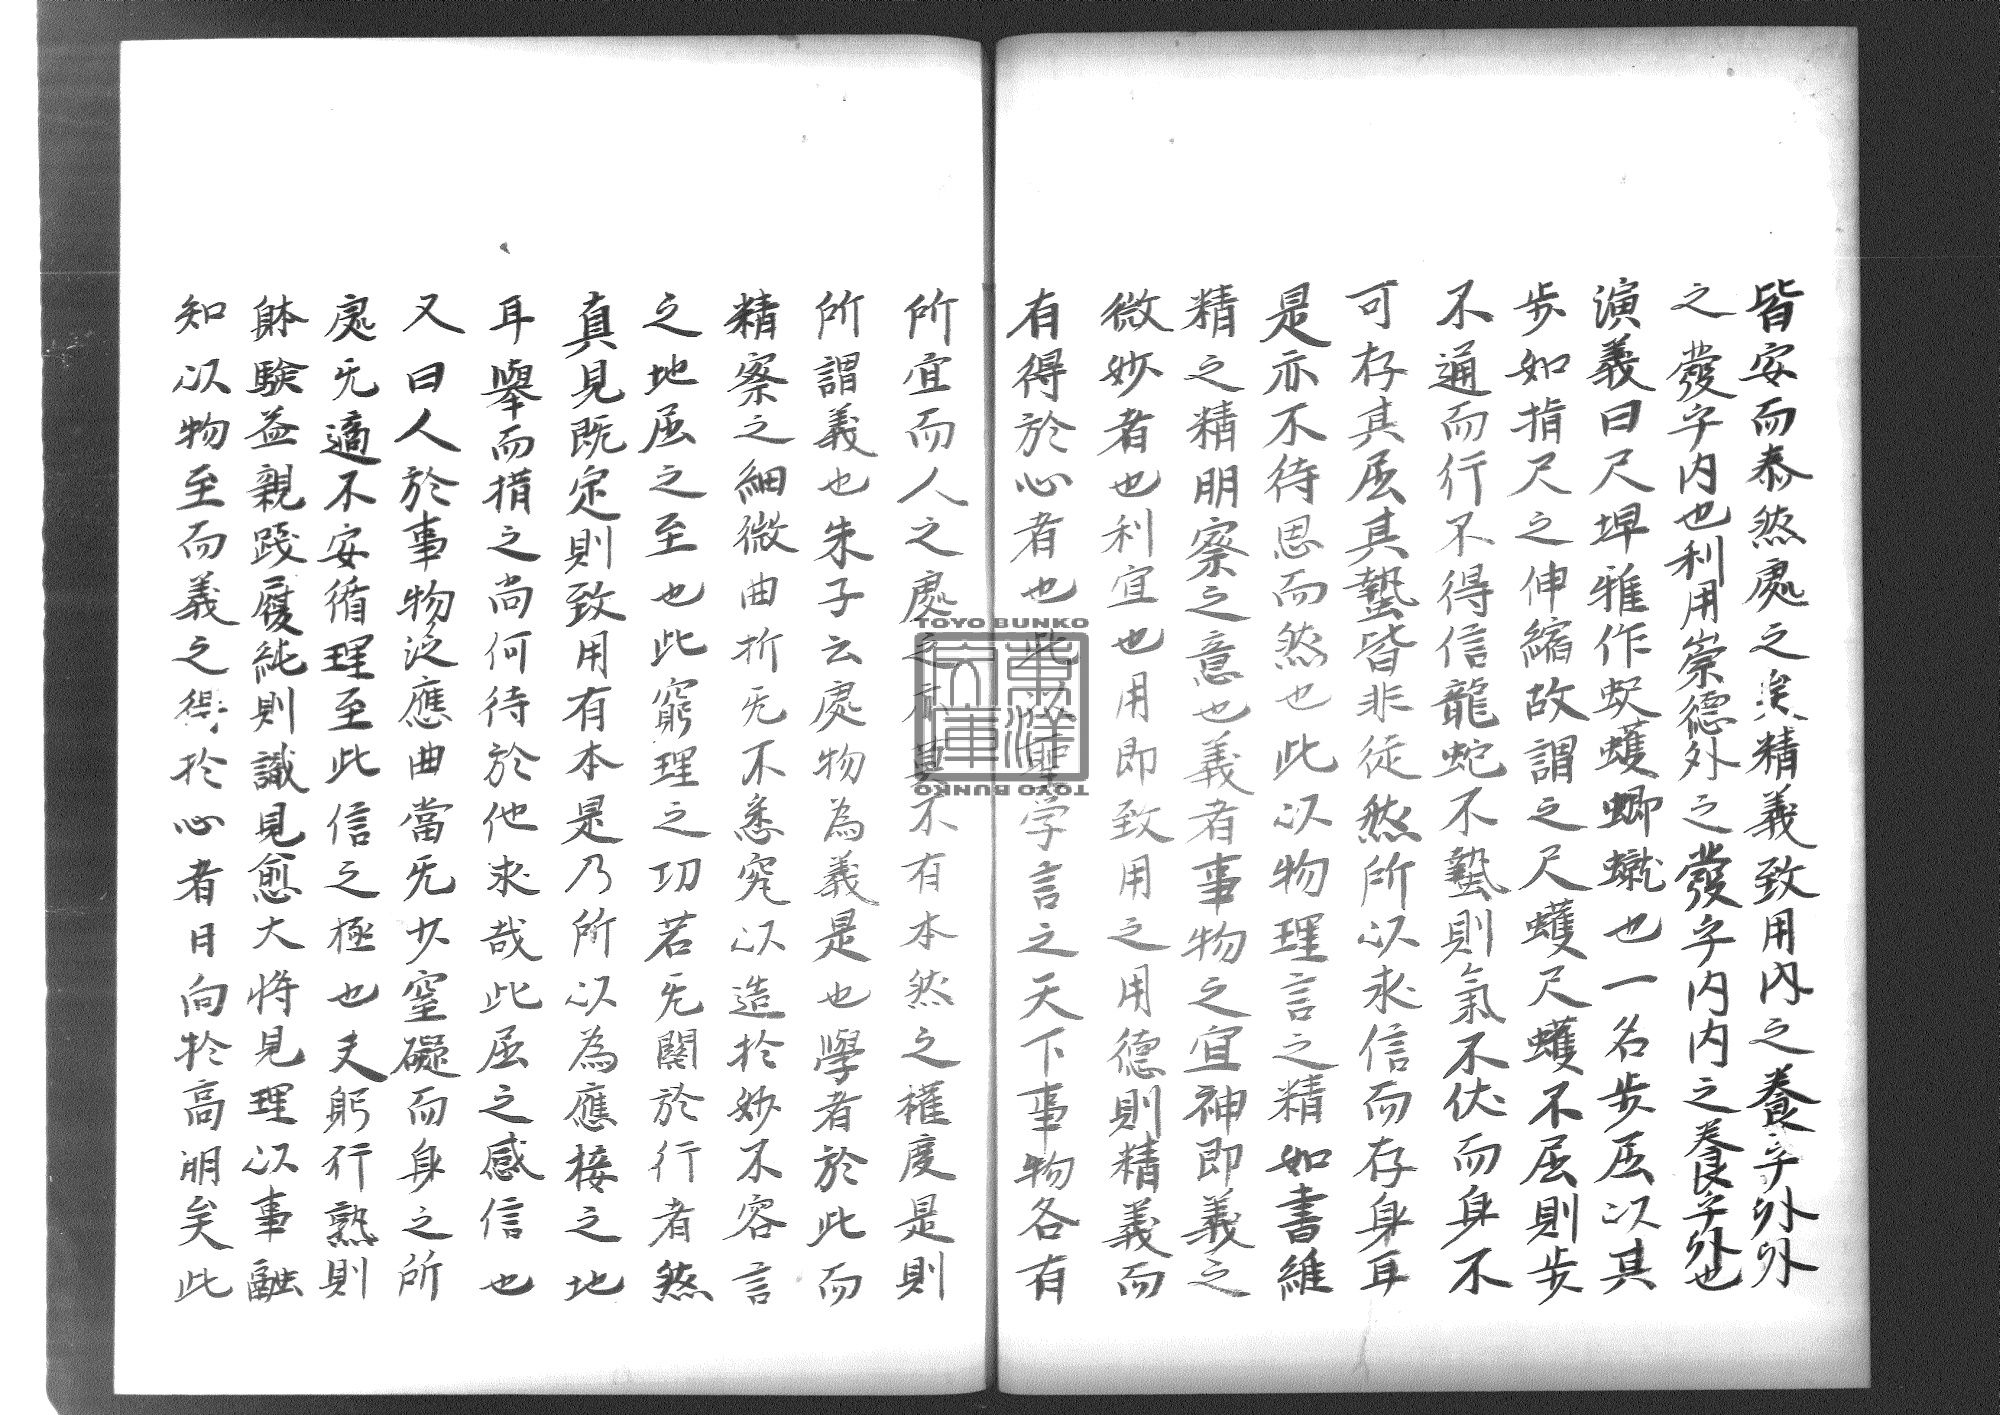 皆安而泰然處之矣精義致用內之養字外外
之發字內也利用崇德外之發字內內之養字外也
演義曰尺埤雅作蚇蠖蝍蠘也一名步屈以其
步如指尺之伸縮故謂之尺蠖尺蠖不屈則步
不通而行不得信龍蛇不蟄則氣不伏而身不
可存其屈其蟄皆非徒然所以求信而存身耳
是亦不待思而然也此以物理言之精如書維
精之精明察之意也義者事物之宜神即義之
微妙者也利宜也用即致用之用德則精義而
有得於心者也此以聖学言之天下事物各有
所宜而人之處之亦莫不有本然之權度是則
所謂義也朱子云處物為義是也學者於此而
精察之細微曲折无不悉究以造於妙不容言
之地屈之至也此窮理之功若无關於行者然
真見既定則致用有本是乃所以為應接之地
耳舉而措之尚何待於他求哉此屈之感信也
又曰人於事物泛應曲當无少窒礙而身之所
處无適不安循理至此信之極也夫躬行熟則
躰驗益親踐履純則識見愈大将見理以事融
知以物至而義之得於心者日向於高明矣此
TOYO BUNKO
東洋文庫
TOYO BUNKO